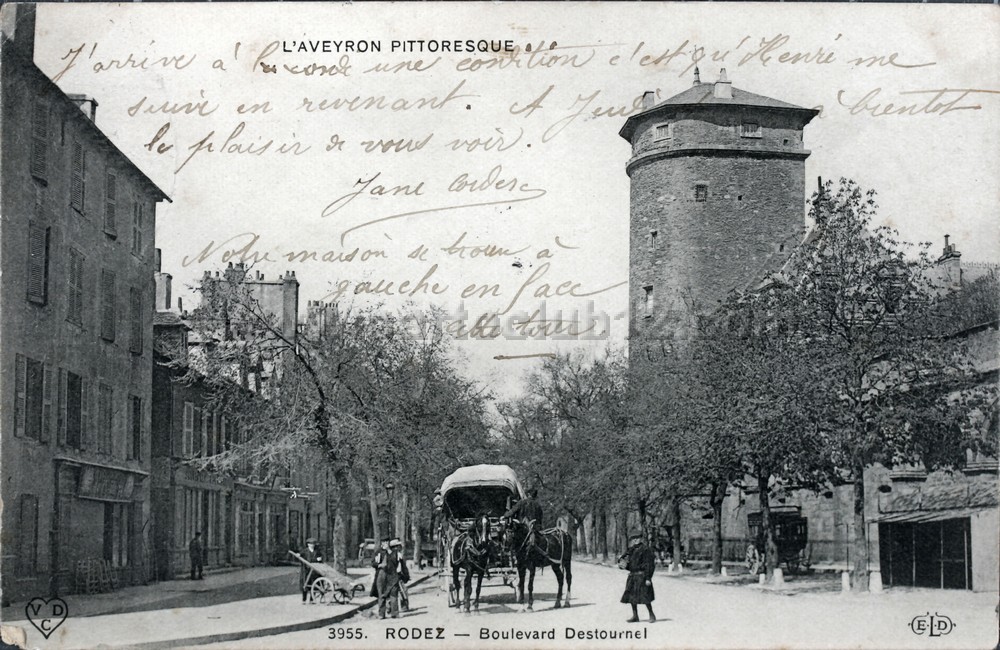 L'AVEYRON PITTORESQUE
J'arrive à une condition c'est qu'Henri me
suive en revenant. A Jeudi bientot
le plaisir de vous voir.
Jane
Notre maison se trouve à
gauche en face
cette tour
postcardclub12.com
VDC
3955. RODEZ — Boulevard Destournel
E.L.D